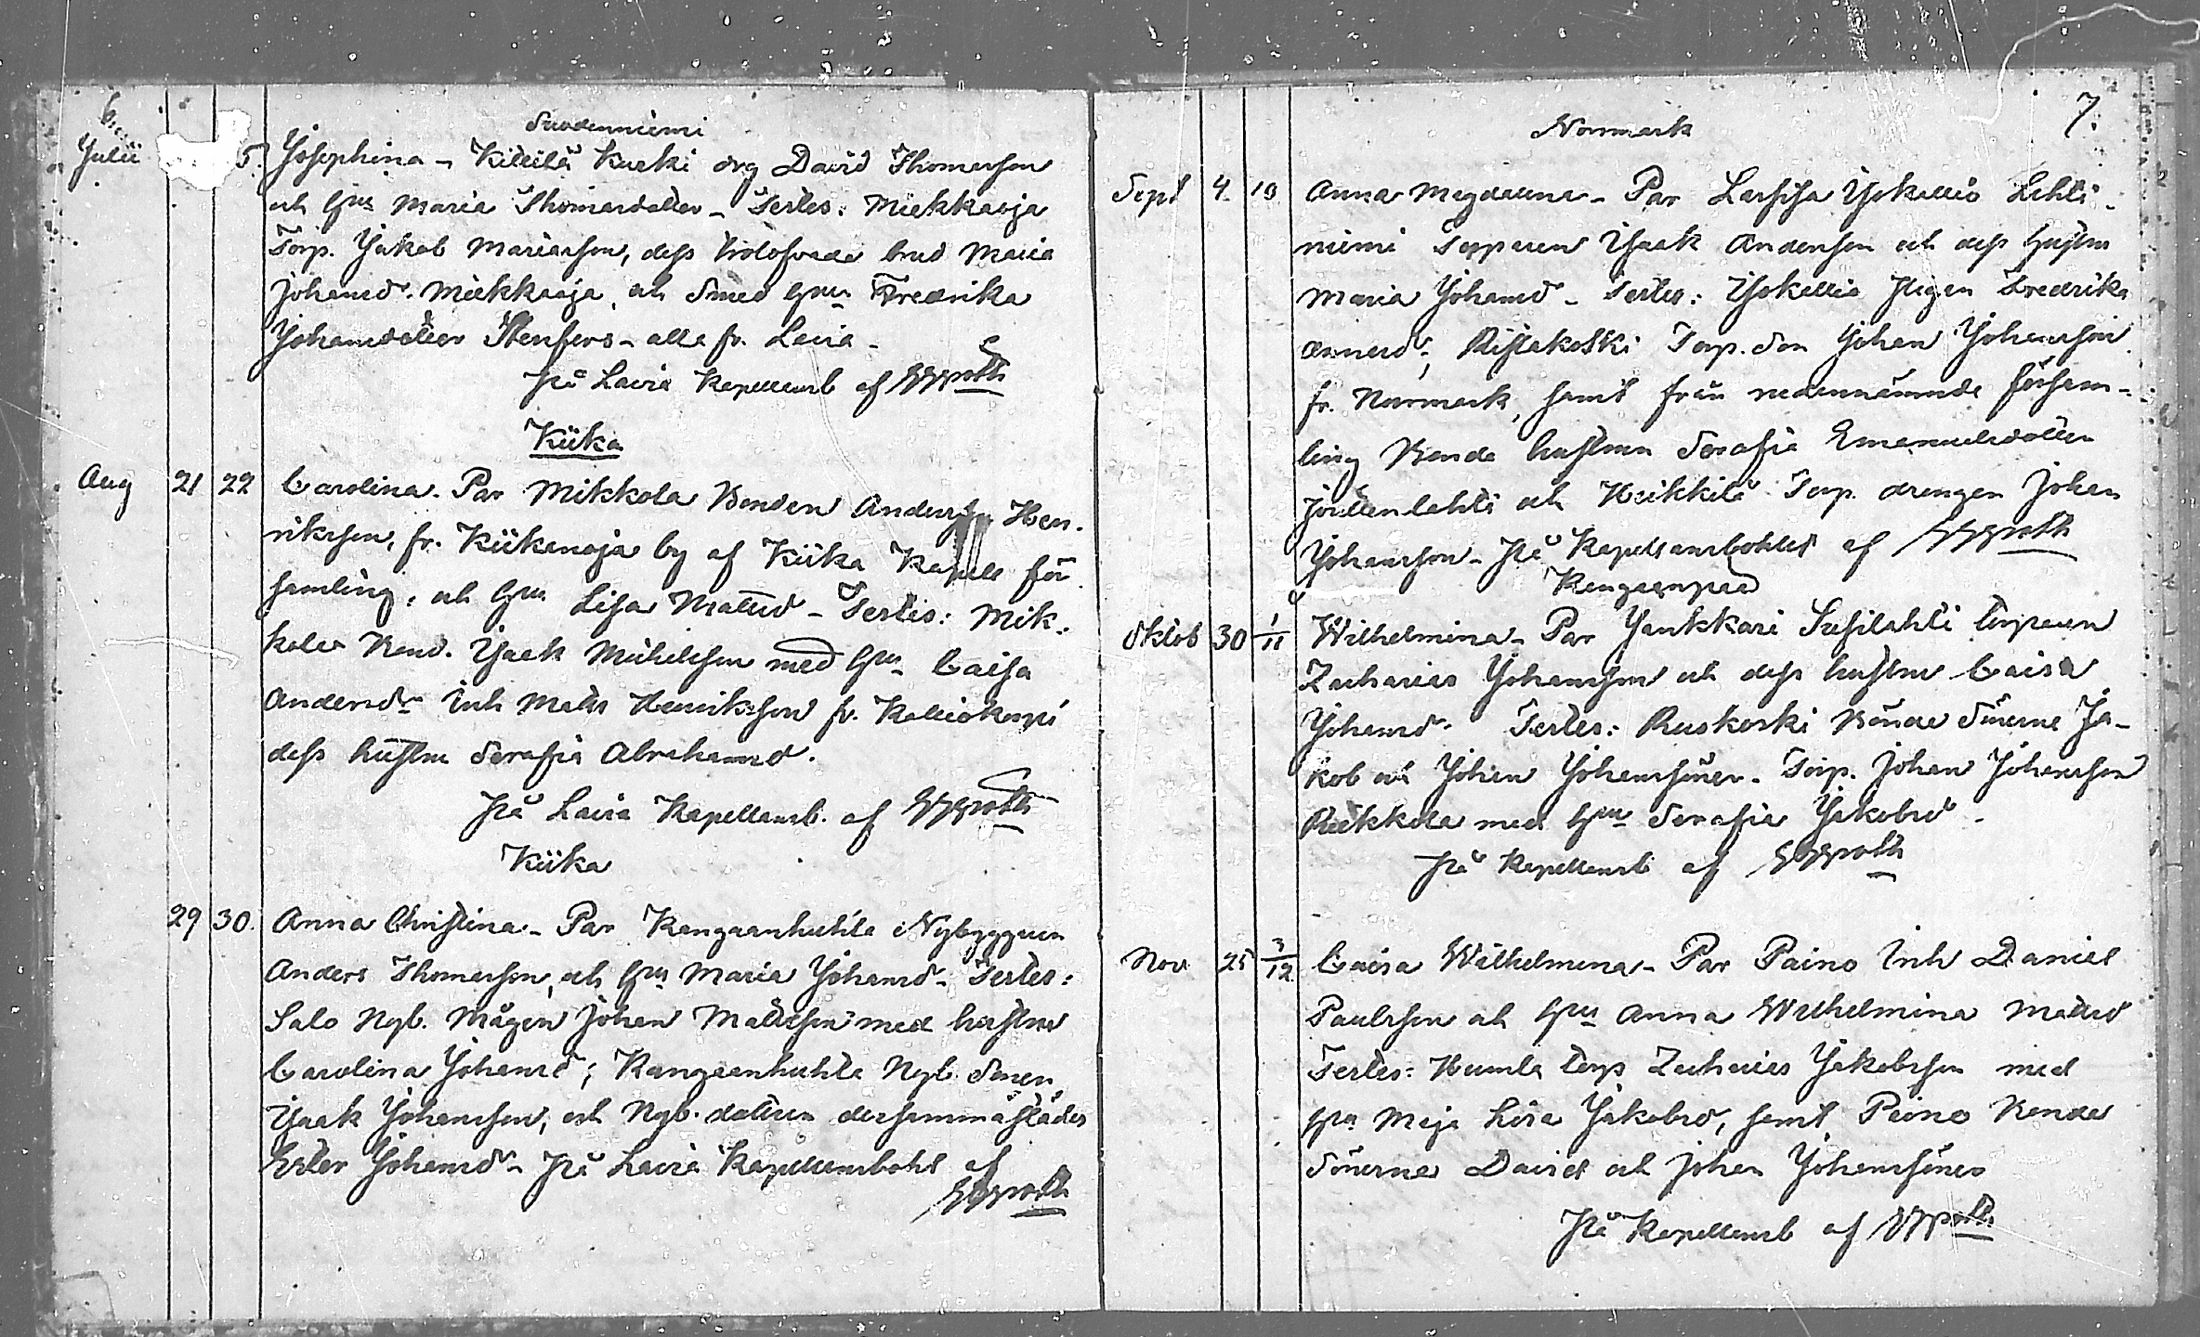 6.
Suodenniemi
Julii 5. Josephina - Kittilä Kurki drg David Thomasson
och Hu Maria Thomasdotter - Testes: Miekkaoja
Torp. Jakob Mariasson, dess trolofvade brud Maria
Johansd. Miekkaoja, och Smed Hun Fredrika
Johansdotter Stenfors - alla fr. Lavia -
på Lavia Kapellansb af
Kiika
Aug 21 22 Carolina. Par Mikkola Bonden Anders Hen-
riksson, fr. Kiikanoja by af Kiika Kapell för
samling, och Hun Lisa Mattsd - Testis: Mik-
kola Bond. Isaak Michelsson med Hun Caisa
Andersdr Inh Mats Henriksson fr. Kalliokorpi
dess hustru Serafia Abrahamsd.
på Lavia Kapellansb. af
Kiika
29 30. Anna Christina - Par Kangaanhuhta Nybyggaren
Anders Thomasson, och Hun Maria Johansd - Testes:
Salo Nyb. Mågen Johan Mattsson med hustru
Carolina Johansd; Kangaanhuhta Nyb. Sonen
Isaak Johansson, och Nyb. dottren dersammastädes
Ester Johansd - på Lavia Kapellansbohl af
7.
Norrmark
Sept 4. 10 Anna Magdalena - Par Lassila Isokallio Lehti-
niemi Torparen Isaak Andersson och dess hustru
Maria Johansd - Testes: Isokallio Pigan Fredrika
Rislakoski Torp. Son Johan Johansson
fr. Norrmark, samt från nedannämnde försam-
ling Bonde hustrun Serafia Emanuelsdotter
Joutenlahti och Heikkilä Torp. drengen Johan
Johansson - på Kapellansbohlet af
Kangaanpää
Oktob 30 1/11 Wilhelmina - Par Jankkari Susilahti torparen
Zacharias Johansson och dess hustru Caisa
Johansd. Testes: Ruskoski Bonde Sönerne Ja-
kob och Johan Johanssöner - Torp. Johan Johansson
med Hun Serafia Jakobsd -
på Kapellansb af
Nov 25 3/12 Caisa Wilhelmina - Par Paino Inh Daniel
Paulsson och Hun Anna Wilhelmina Mattsd
Testes: Humla torp Zacharias Jakobsson med
Hu Maja Lisa Jakobsd, samt Paino Bonde
Sönerne David och Johan Johanssöner
på Kapellansb af